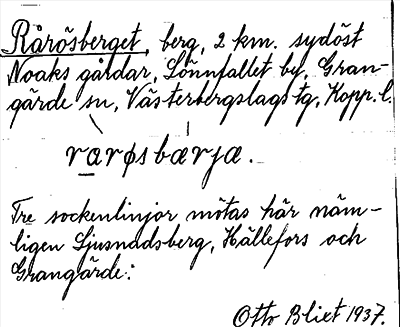 Rårösberget, berg, 2 km. sydöst
Noaks gårdar, Lönnfallet by, Gran-
gärde sn, Västerbergslags tg, Kopp. l.
rarøsbærja.
Tre sockenlinjor mötas här näm-
ligen Ljusnadsberg, Hällefors och
Grangärde:
Otto Blixt 1937.